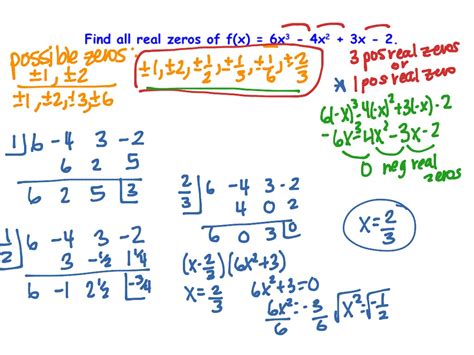 Find all real zeros of f(x) = 6x³ - 4x² + 3x - 2.
possible zeros:
±1, ±2
±1, ±2, ±3, ±6
±1, ±2, ±1/2, ±1/3, ±1/6, ±2/3
3 pos real zeros
or
* 1 pos real zero
6(-x)³-4(-x)²+3(-x)-2
-6x³-4x²-3x-2
0 neg real zeros
1| 6 -4 3 -2
6 2 5
6 2 5 |3
1/2| 6 -4 3 -2
3 -1/2 1 1/4
6 -1 2 1/2 |-3/4
2/3| 6 -4 3 -2
4 0 2
6 0 3 |0
(x-2/3)(6x²+3)
x=2/3 6x²+3=0
6x²/6=-3/6 √x²=√-1/2
x=2/3